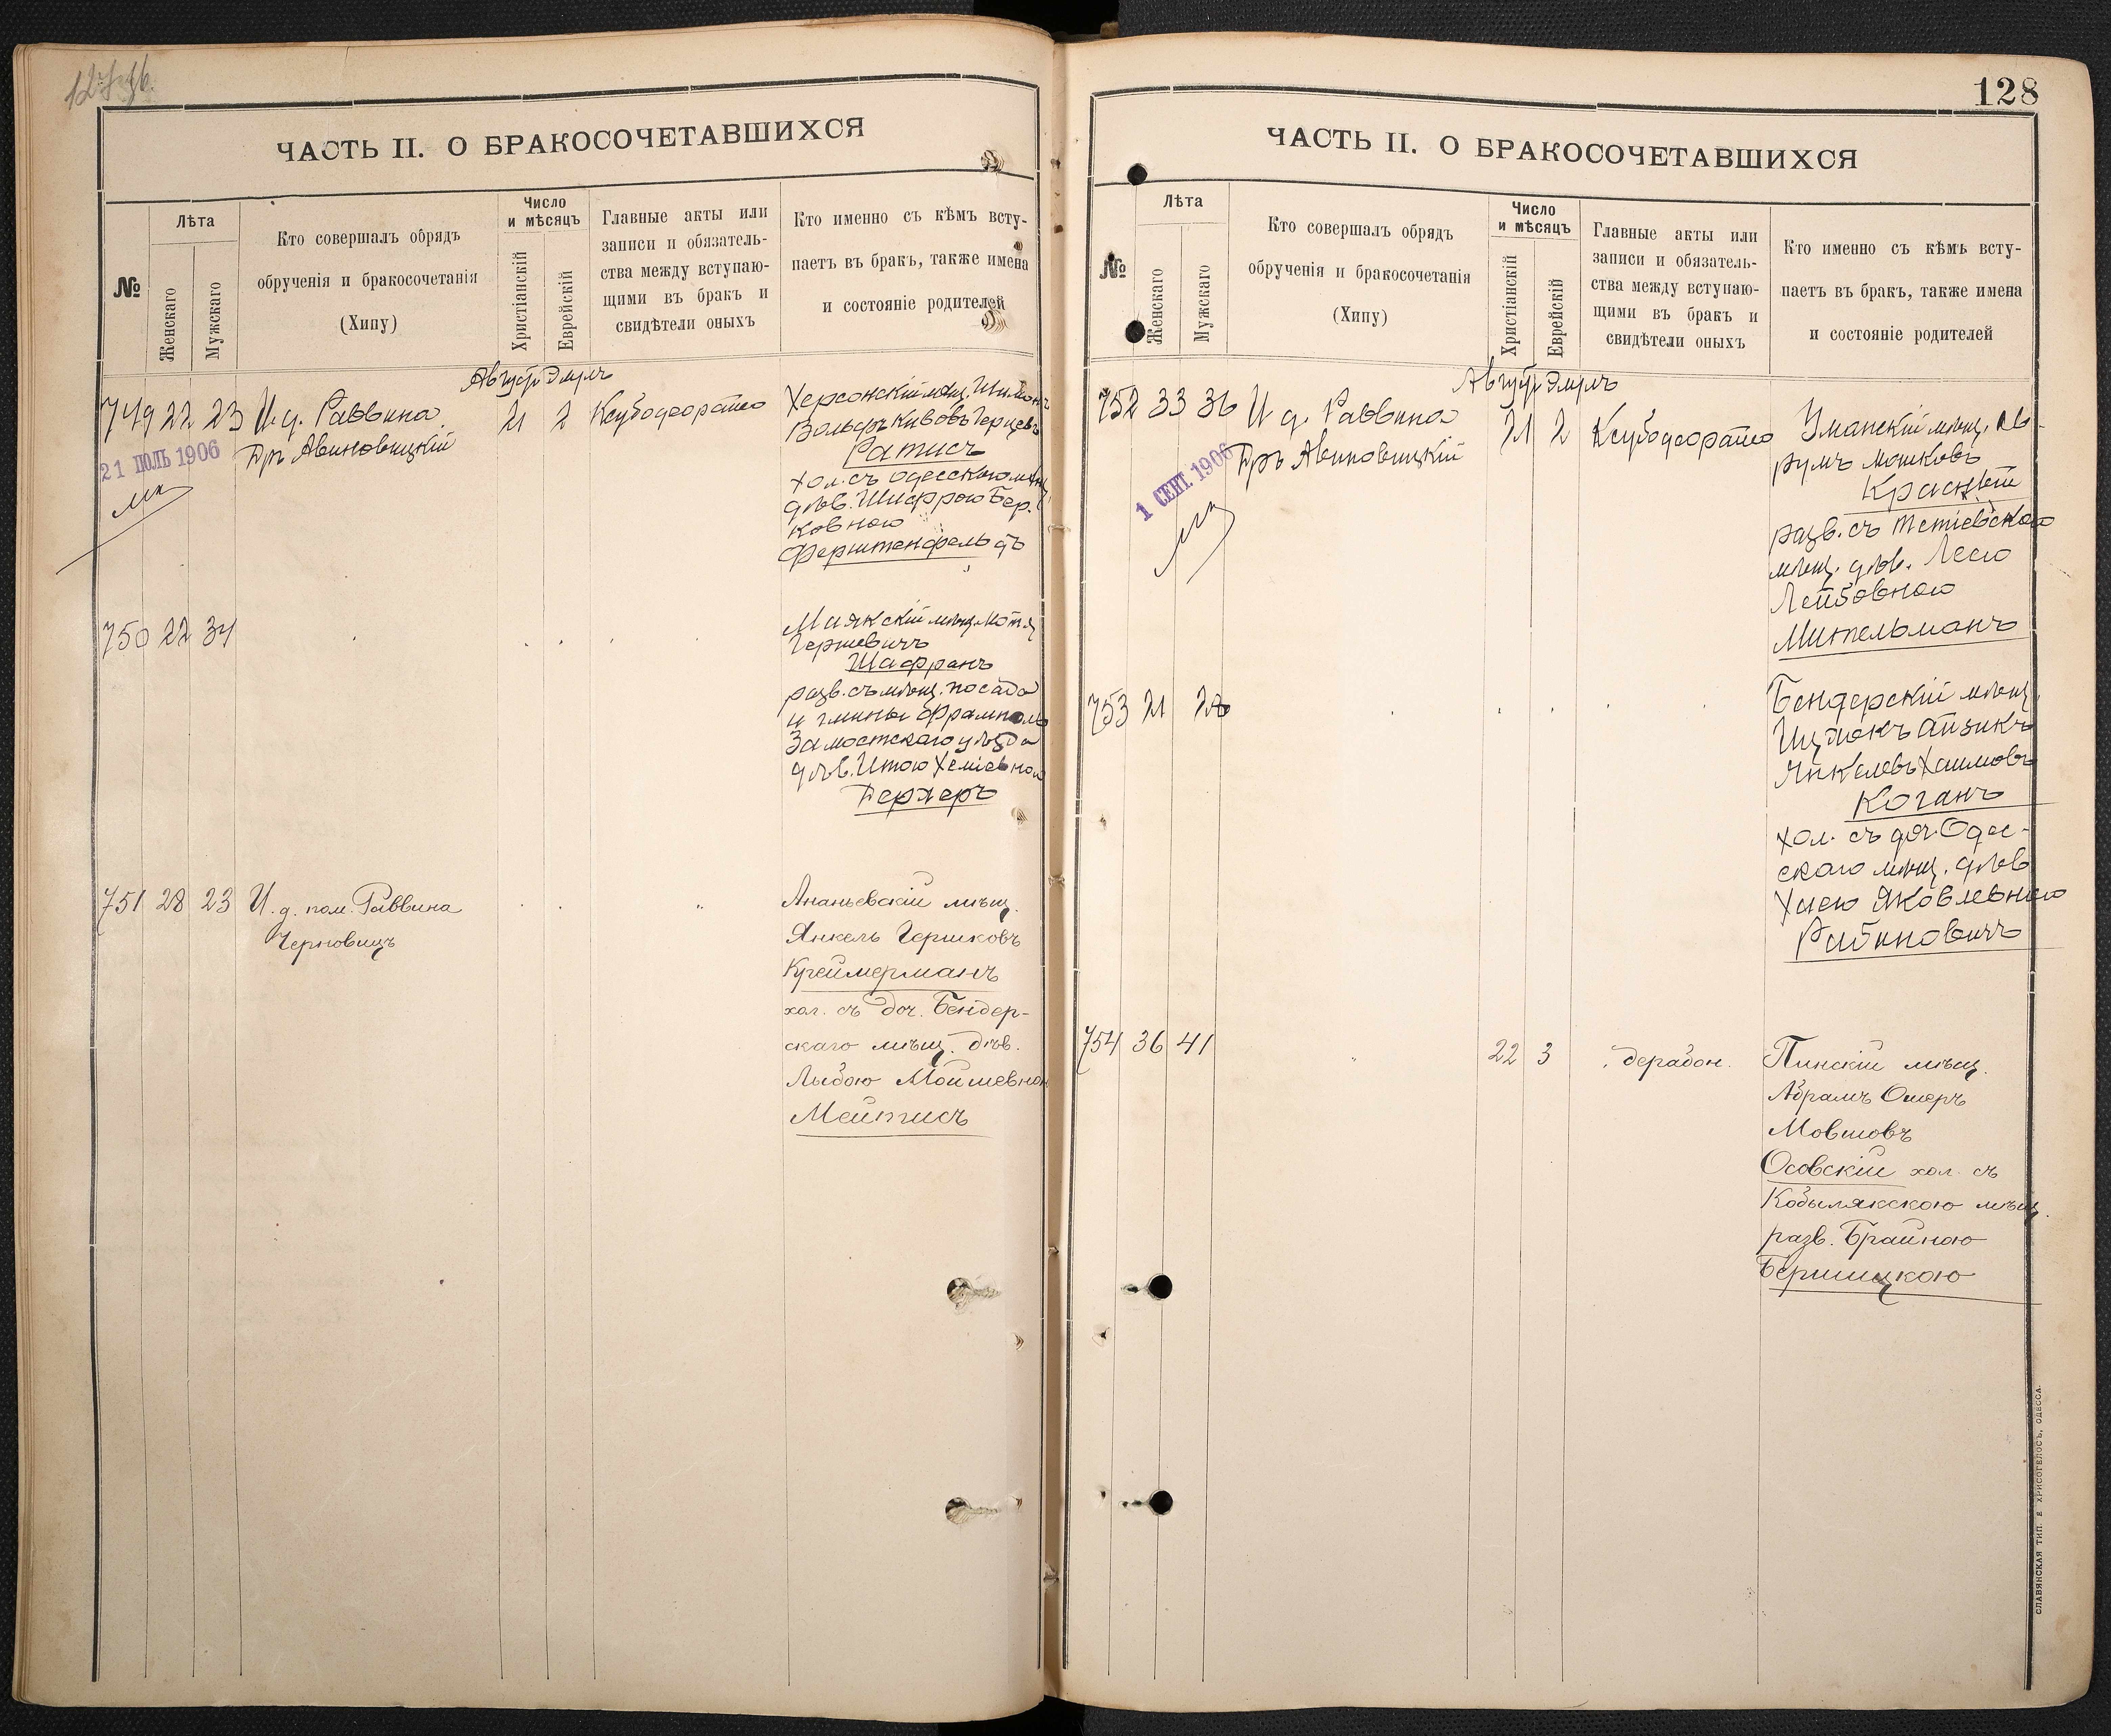 ЧАСТЬ II. О БРАКОСОЧЕТАВШИХСЯ
№
Лѣта
Женскаго
Мужскаго
Кто совершалъ обрядъ
обрученія и бракосочетанія
(Хипу)
Число
и мѣсяцъ
Христіанскій
Еврейскій
Главные акты или
записи и обязатель-
ства между вступаю-
щими въ бракъ и
свидѣтели оныхъ
Кто именно съ кѣмъ всту-
паетъ въ бракъ, также имена
и состояніе родителей
Август Элулъ
749 22 23 И. д. Раввина 21 2
21 ІЮЛЬ 1906
Гръ Авиновицкій
Херсонскій мѣщ. Шимонъ
Вольфъ Кивовъ Герцевъ
Ратисъ
хол. съ одесскою мѣщ.
дѣв. Шифрою Бер-
ковною
Ферштенфельдъ
750 22 34
Маякскій мѣщ. Мотя
Гершевичъ
Шафранъ
разв. съ мѣщ. посада
и гмины Фрамполь
Замостскаго уѣзда
дѣв. Итою Хемiевною
Бергеръ
751 28 23 И. д. пом. Раввина
Черновицъ
Ананьевскій мѣщ.
Янкель Гершковъ
Креймерманъ
хол. съ доч. Бендер-
скаго мѣщ. дѣв.
Лыбою Мошевною
Мейтисъ
128
ЧАСТЬ II. О БРАКОСОЧЕТАВШИХСЯ
№
Лѣта
Женскаго
Мужскаго
Кто совершалъ обрядъ
обрученія и бракосочетанія
(Хипу)
Число
и мѣсяцъ
Христіанскій
Еврейскій
Главные акты или
записи и обязатель-
ства между вступаю-
щими въ бракъ и
свидѣтели оныхъ
Кто именно съ кѣмъ всту-
паетъ въ бракъ, также имена
и состояніе родителей
Август Элулъ
752 33 36 И. д. Раввина 21 2
1 СЕНТ. 1906
Гръ Авиновицкій
Уманскій мѣщ. Ав-
румъ Мошковъ
Красный
разв. съ Тетіевскою
мѣщ. дѣв. Лесю
Лейбовною
Мительманъ
753 21 28
Бендерскій мѣщ.
Ицхокъ Айзикъ
Янкелевъ Хаимовъ
Коганъ
хол. съ доч. Одес-
скаго мѣщ. дѣв
Хаею Яковлевною
Рабиновичъ
754 36 41 22 3 дерабон.
Пинскій мѣщ.
Абрамъ Ошеръ
Мовшовъ
Осовскій хол. съ
Кобылякскою мѣщ.
разв. Брайною
Бершицкою
СЛАВЯНСКАЯ ТИП. Е ХРИСОГЕЛОСЪ, ОДЕССА.